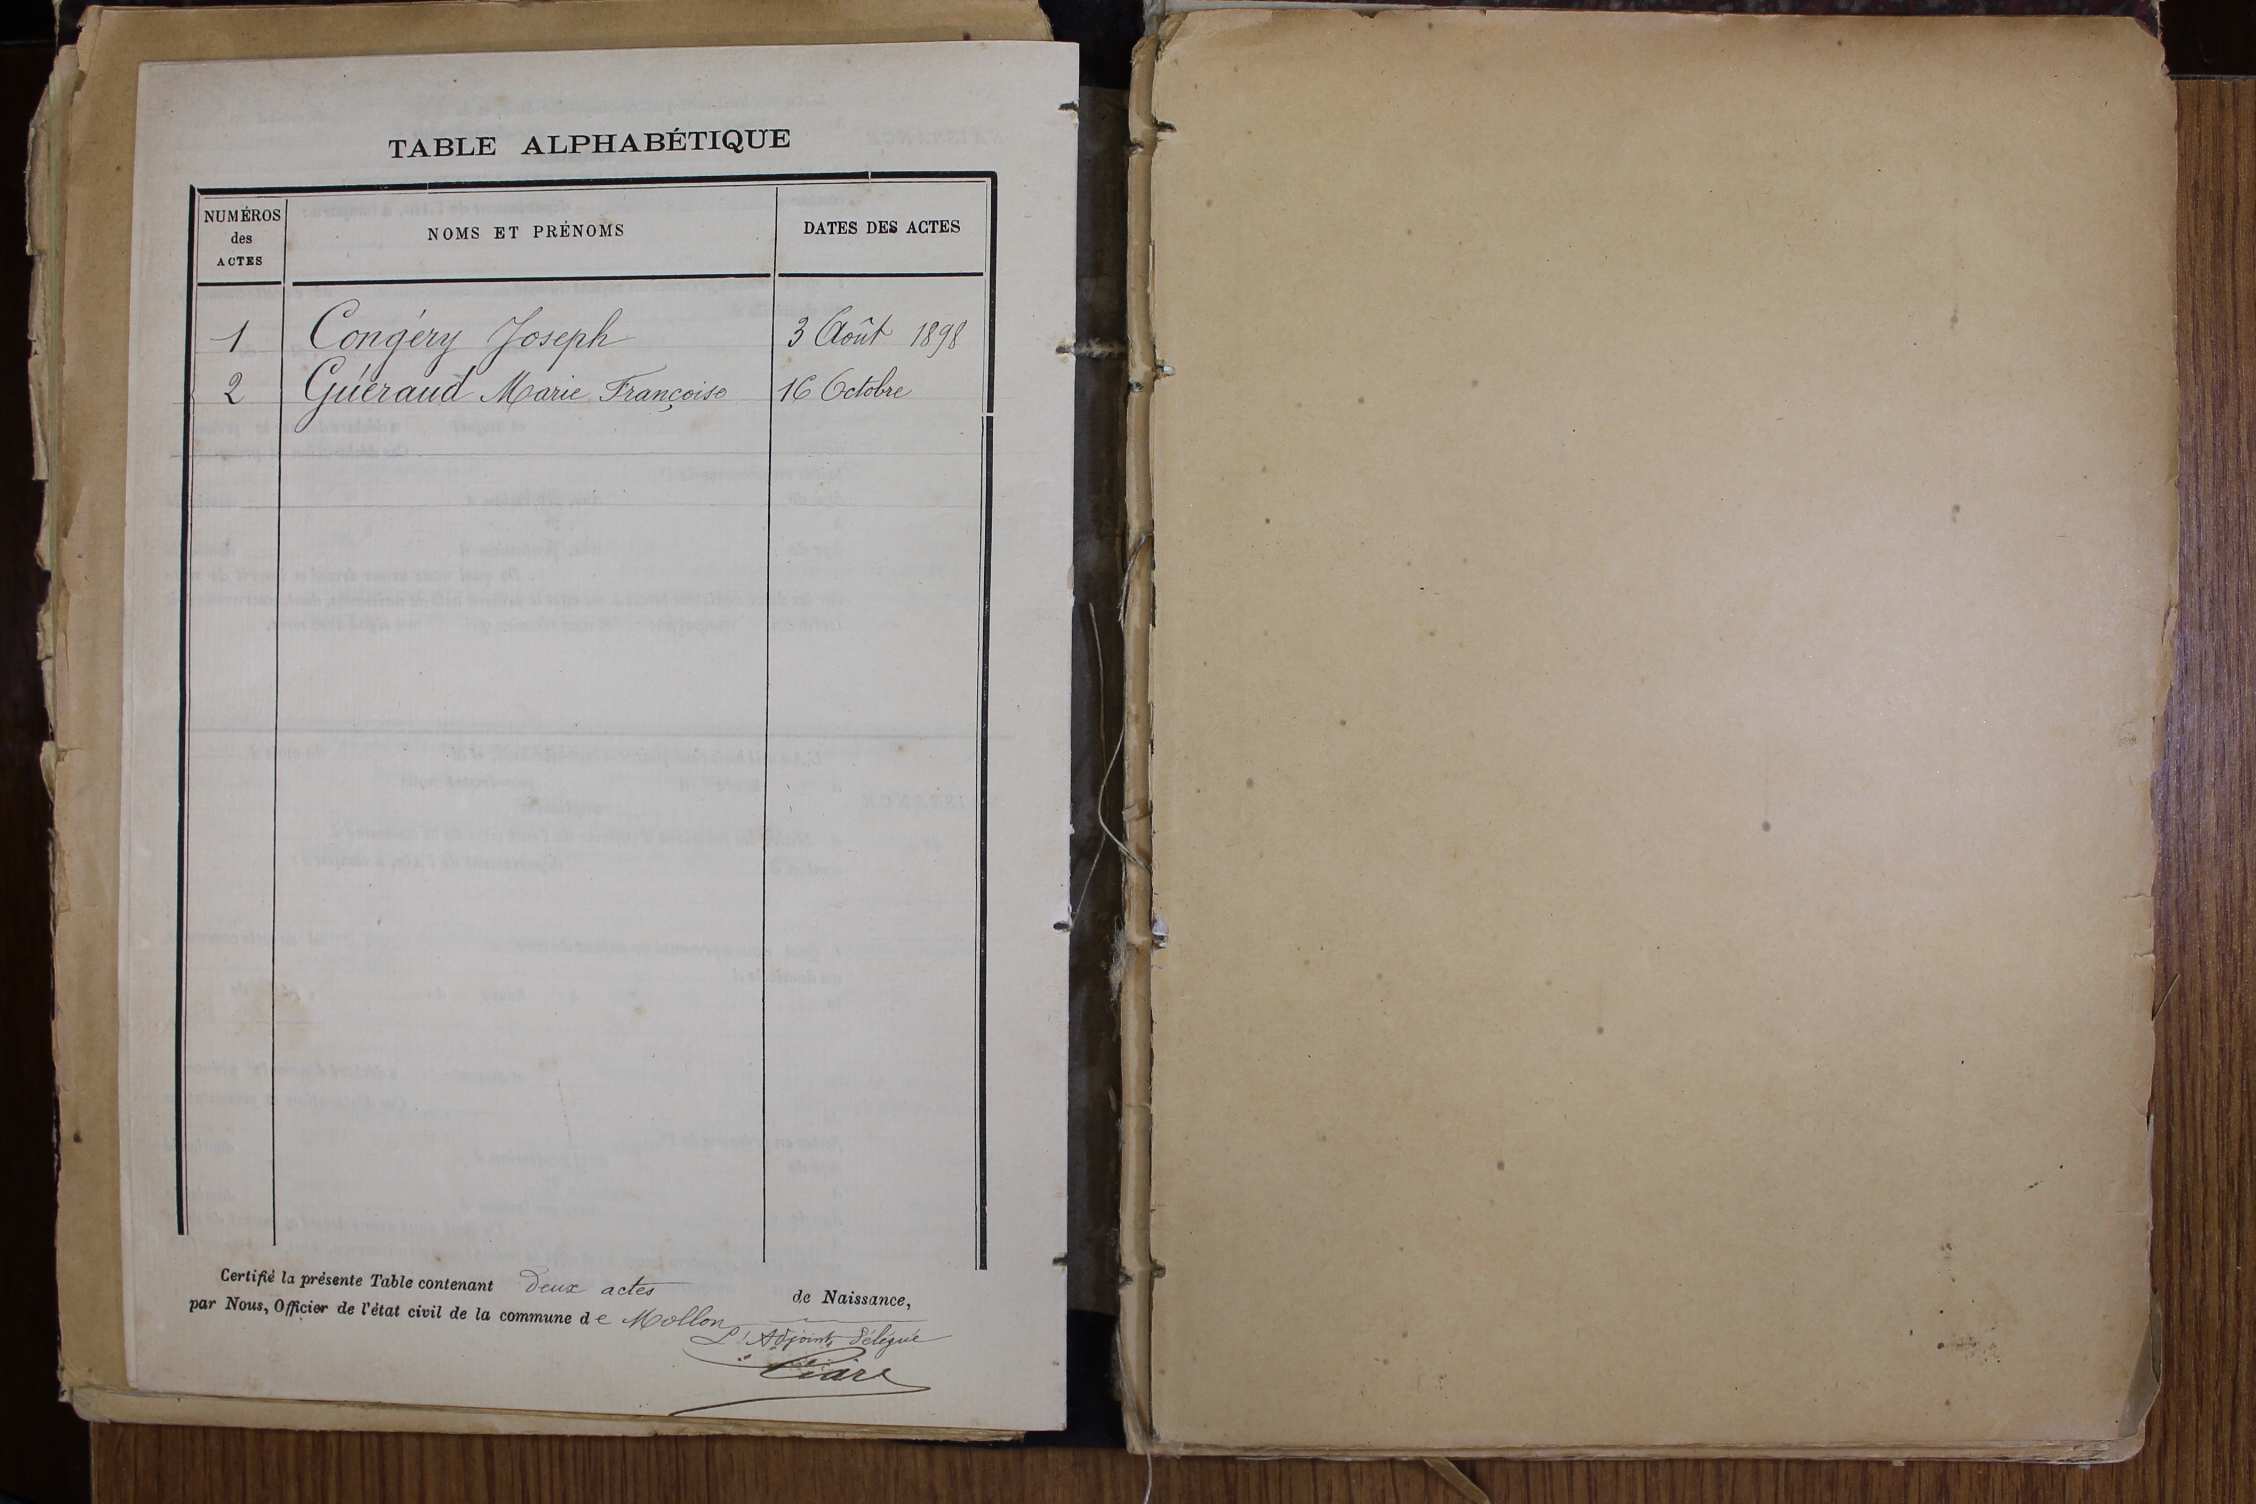 TABLE ALPHABÉTIQUE
NUMÉROS des ACTES
NOMS ET PRÉNOMS
DATES DES ACTES
1 Congéry Joseph 3 Août 1898
2 Guéraud Marie Françoise 16 Octobre
Certifié la présente Table contenant deux actes de Naissance,
par Nous, Officier de l'état civil de la commune de Mollon
L'Adjoint délégué